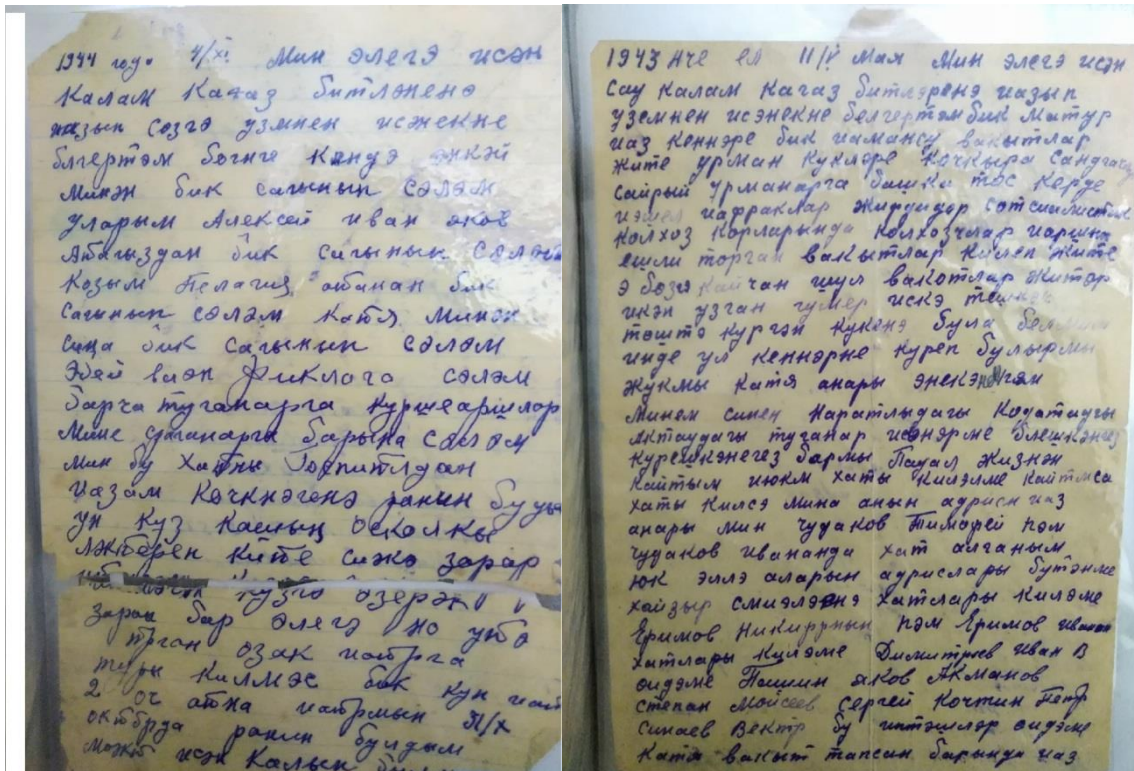 1944 год. 4/XI Мин элегэ исэн
Калам Кагаз битлэненэ
иазып сезгэ узмнен исжекне
блгертэм богнге Кондэ энкэй
Минэн бик сагынып сэлэм
уларым Алексей иван яков
Абагыздан бик сагынып Сэлэм
Козым Пелагия абанан бик
Сагынып сэлэм Катя минэн
сиңа бик сагынып сэлэм
Эбей вкэп Фиклага сэлэм
барча туганарга куршеаршлар
Мине сраганарга барына сэлэм
мин бу Хатны Госпитлдан
иазам Кочкнэгенэ ранин булды
ун куз кашың осколкы
лэктерен ките сижэ зарар
кузгэ озерэк
заран бар элегэ но укбэ
трган озак иатрга
туры килмэс бик кун иат
2 оч атна иатрмын 11/X
октбрда ранин булдым
исэн Калып
1943 нче ел 11/V Мая Мин элегэ исэн
сау Калам Кагаз битлэренэ иазып
уземнен исэнекне белгертэм бик Матур
иаз кеннэре бик иамансу вакытлар
жите урман куклэре Кочкыра Сандугач
сайрый урманарга башка тос керде
иэшел иафраклар жирдидэр сотсиилистик
колхоз корларында колхозчлар иаршна
ешли торган вакытлар килеп жите
э безгэ кайчан шул вакотлар житэр
икэн узган гумер искэ тошкэч
тоштэ кургэн кукенэ була белмим
инде ул кеннэрне куреп булырмы
жукмы катя анары энекэнэгэм
минем синен Наратлыдагы Кодатаугы
Актаудагы туганар исэнэрме блешкэнгез
курешкэнегез бармы Пауал жизнэн
кайтым июкм хаты килэлме кайтмса
хаты килсэ мина анын адриси иаз
анары мин чудаков Тимофей һэм
чудаков Ивананда хат алганым
юк эллэ аларын адрислары бутэнме
хэйзыр смиэлэенэ хатлары килэме
Ефимов Никифрнын һэм Ефимов иванын
хатлары килэме Димитриев Иван В
сидэме Пашин яков Акманов
степан Мойсеев Сергей Кочтин Петр
Синаев Вектр бу иптэшлэр сидэме
Катя вакыт тапсан барында иаз